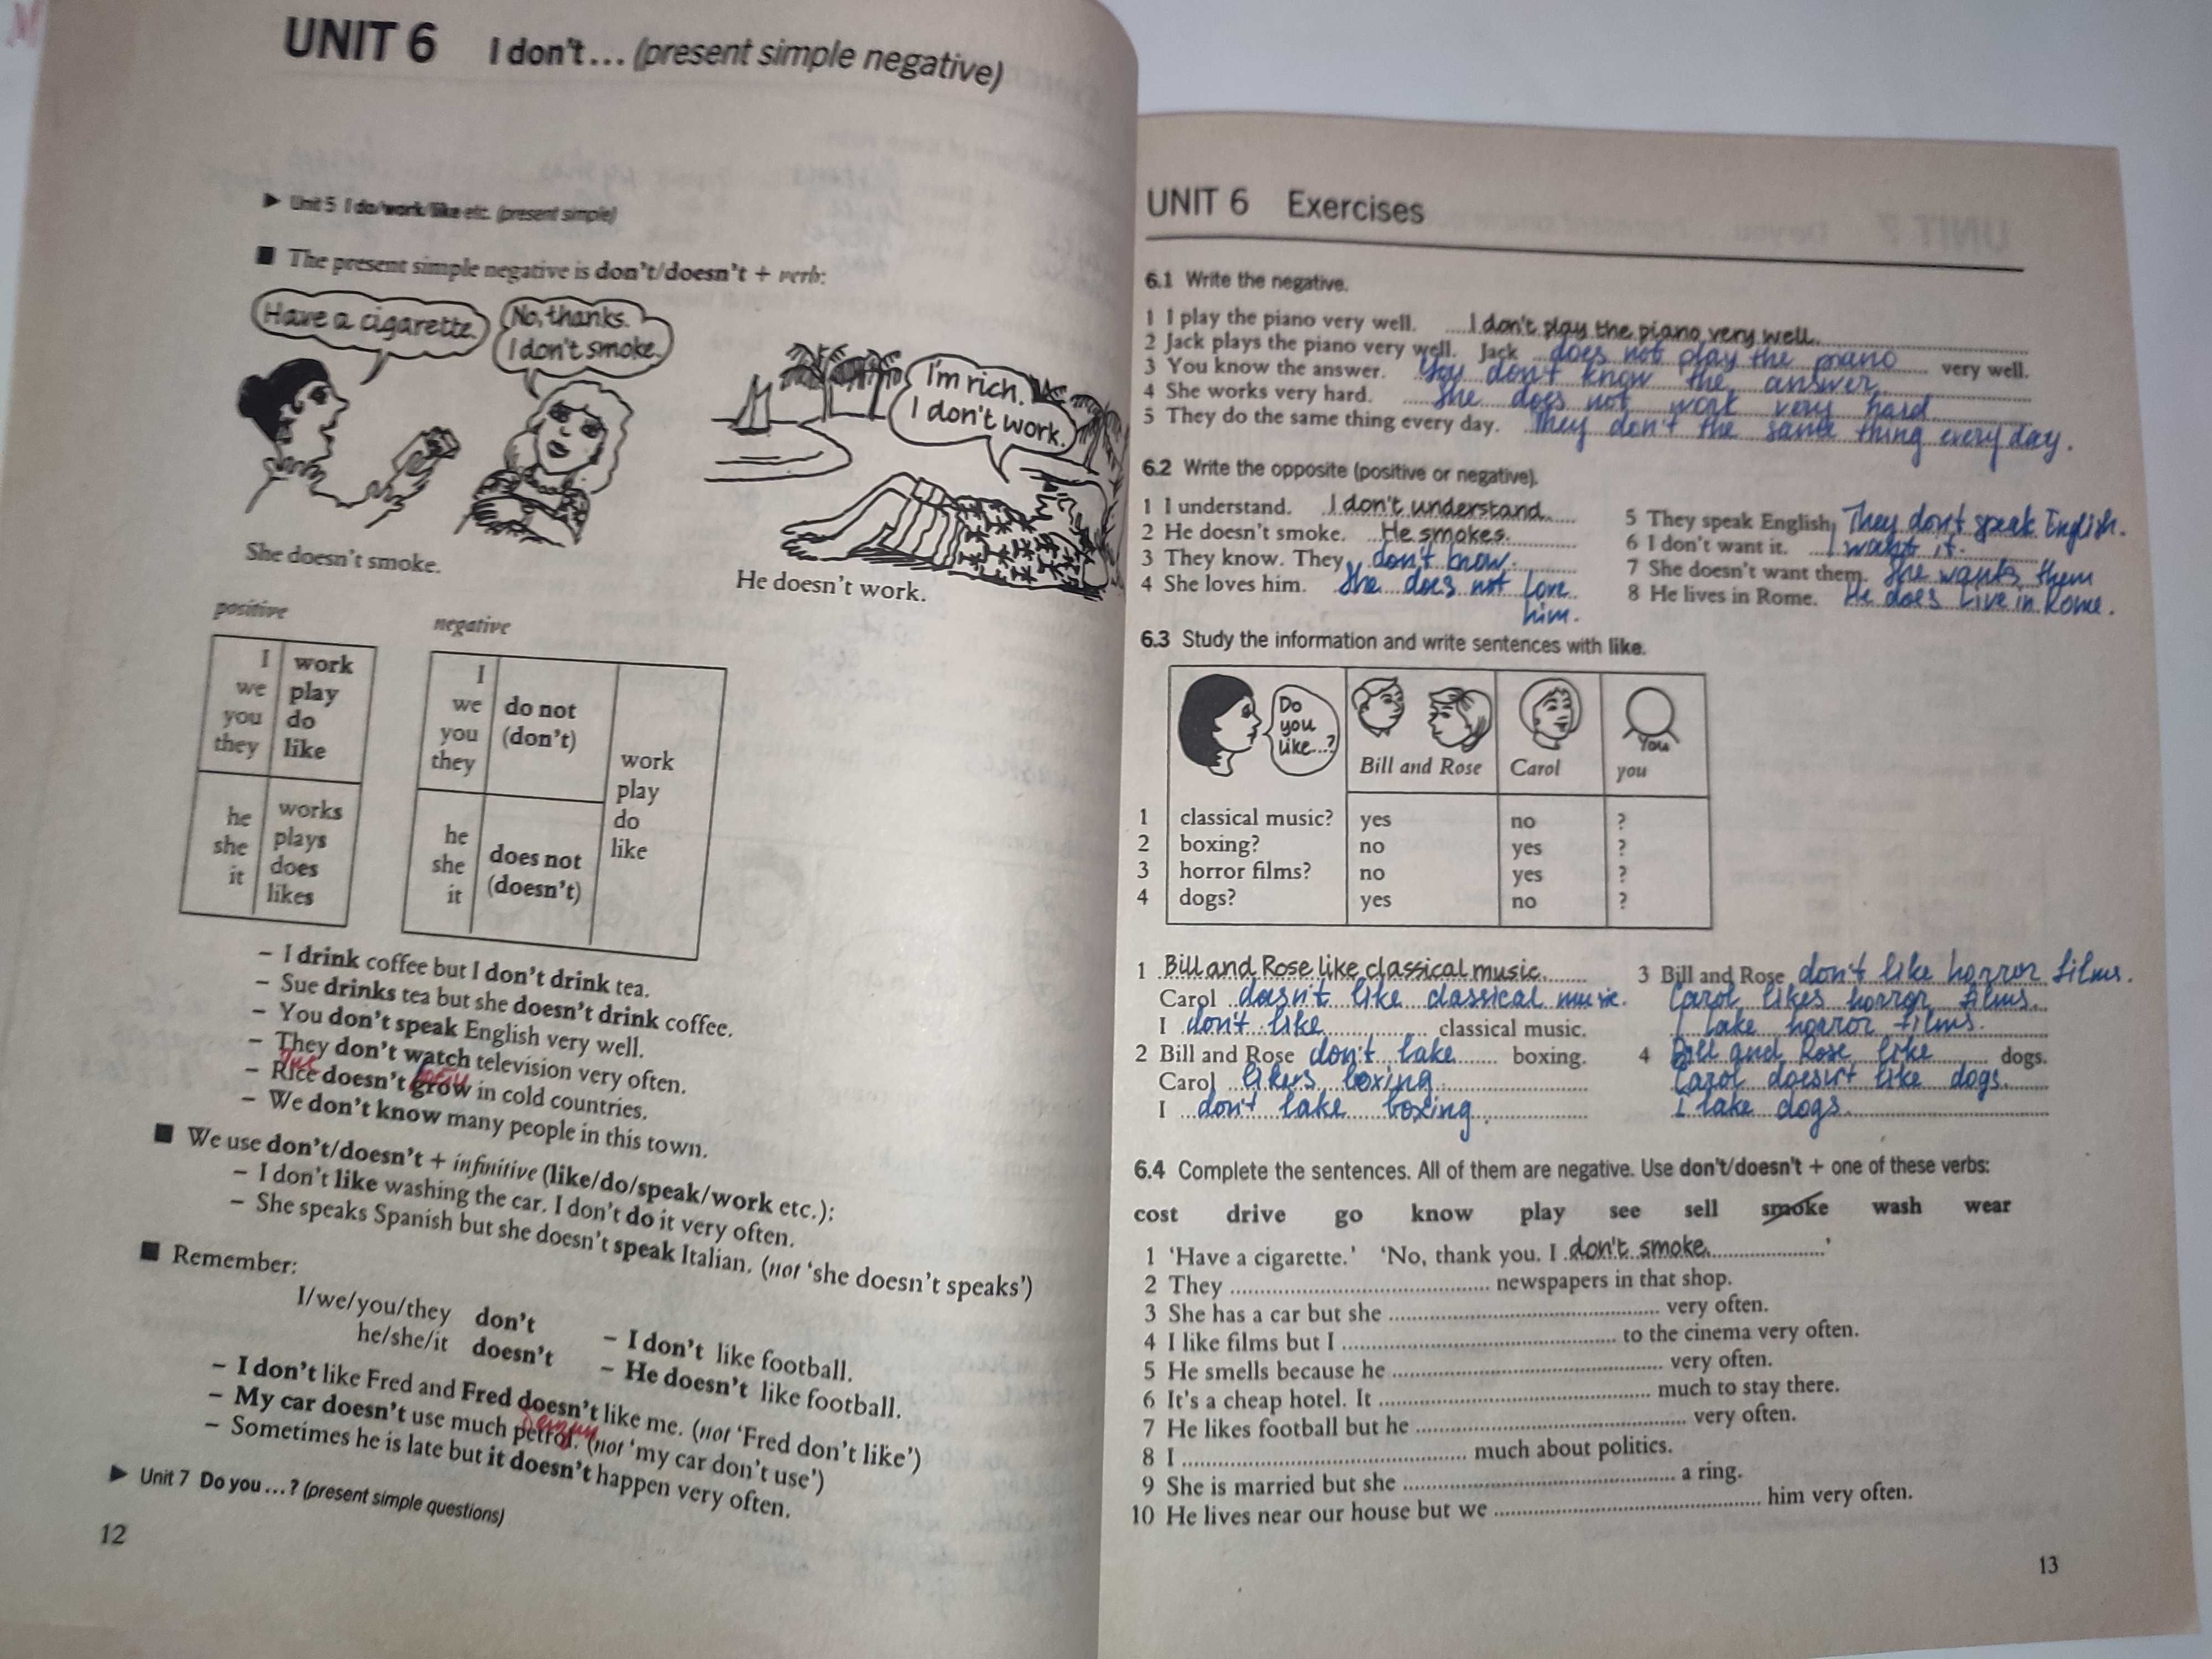 UNIT 6 I don't... (present simple negative)
► Unit 5 I do/work/like etc. (present simple)
■ The present simple negative is don't/doesn't + verb:
Have a cigarette.
No, thanks.
I don't smoke.
I'm rich.
I don't work.
She doesn't smoke.
He doesn't work.
positive
I work
we play
you do
they like
he works
she plays
it does
likes
negative
I
we do not
you (don't)
they
he
she does not
it (doesn't)
work
play
do
like
– I drink coffee but I don't drink tea.
– Sue drinks tea but she doesn't drink coffee.
– You don't speak English very well.
– They don't watch television very often.
– Rice doesn't grow in cold countries.
– We don't know many people in this town.
■ We use don't/doesn't + infinitive (like/do/speak/work etc.):
– I don't like washing the car. I don't do it very often.
– She speaks Spanish but she doesn't speak Italian. (not 'she doesn't speaks')
■ Remember:
I/we/you/they don't
he/she/it doesn't
– I don't like football.
– He doesn't like football.
– I don't like Fred and Fred doesn't like me. (not 'Fred don't like')
– My car doesn't use much petrol. (not 'my car don't use')
– Sometimes he is late but it doesn't happen very often.
► Unit 7 Do you ... ? (present simple questions)
12
UNIT 6 Exercises
6.1 Write the negative.
1 I play the piano very well. I don't play the piano very well.
2 Jack plays the piano very well. Jack does not play the piano very well.
3 You know the answer. You don't know the answer
4 She works very hard. She does not work very hard.
5 They do the same thing every day. They don't the same thing every day.
6.2 Write the opposite (positive or negative).
1 I understand. I don't understand.
2 He doesn't smoke. He smokes.
3 They know. They don't know.
4 She loves him. She does not love
him.
5 They speak English. They don't speak English.
6 I don't want it. I want it.
7 She doesn't want them. She wants them
8 He lives in Rome. He does live in Rome.
6.3 Study the information and write sentences with like.
Do
you
like...?
You
Bill and Rose Carol you
1 classical music? yes no ?
2 boxing? no yes ?
3 horror films? no yes ?
4 dogs? yes no ?
1 Bill and Rose like classical music.
Carol doesn't like classical music.
I don't like classical music.
2 Bill and Rose don't lake boxing.
Carol likes boxing.
I don't lake boxing.
3 Bill and Rose don't like horror films.
Carol likes horror films.
I lake horror films.
4 Bill and Rose like dogs.
Carol doesn't like dogs.
I lake dogs.
6.4 Complete the sentences. All of them are negative. Use don't/doesn't + one of these verbs:
cost drive go know play see sell smoke wash wear
1 'Have a cigarette.' 'No, thank you. I don't smoke.'
2 They .......... newspapers in that shop.
3 She has a car but she .......... very often.
4 I like films but I .......... to the cinema very often.
5 He smells because he .......... very often.
6 It's a cheap hotel. It .......... much to stay there.
7 He likes football but he .......... very often.
8 I .......... much about politics.
9 She is married but she .......... a ring.
10 He lives near our house but we .......... him very often.
13